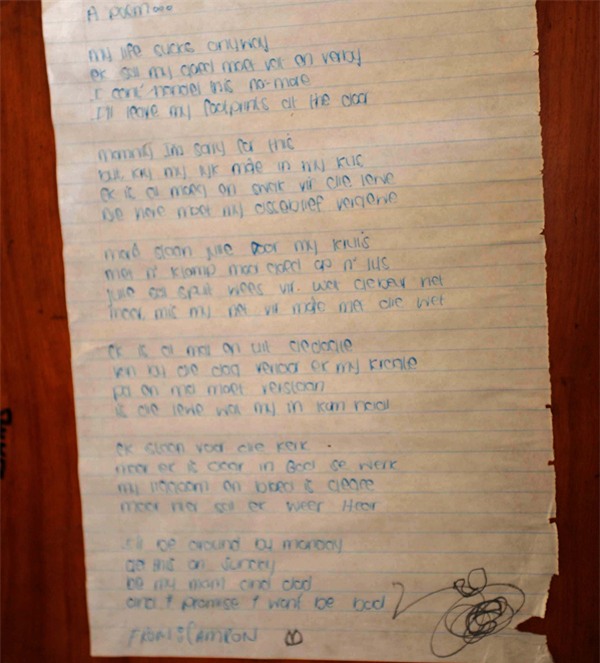 A poem...
my life sucks anyway
ek sal my goed moet vat en verby
I can't handel this no-more
I'll leave my footprints at the door
mammy Im sorry for this
but kry my lyk in my
ek is al moeg en swak vir die lewe
die here moet my asseblief vergewe
more staan julle voor my
met n' klomp moor goed op n' lys
julle sal spyt wees vir wat gebeur het
maar mis my net vir met die wet
ek is al moeg en uit gedagte
en by die dag verloor ek my kragte
pa en ma moet verstaan
is die lewe wat my in kan haal
ek staan voor die kerk .
maar ek is daar in God se werk
my liggaam en bloed is
maar sal ek weer Hoor
I'll be around by monday
go this on sunday
be my mam and dad
and I promise I won't be bad